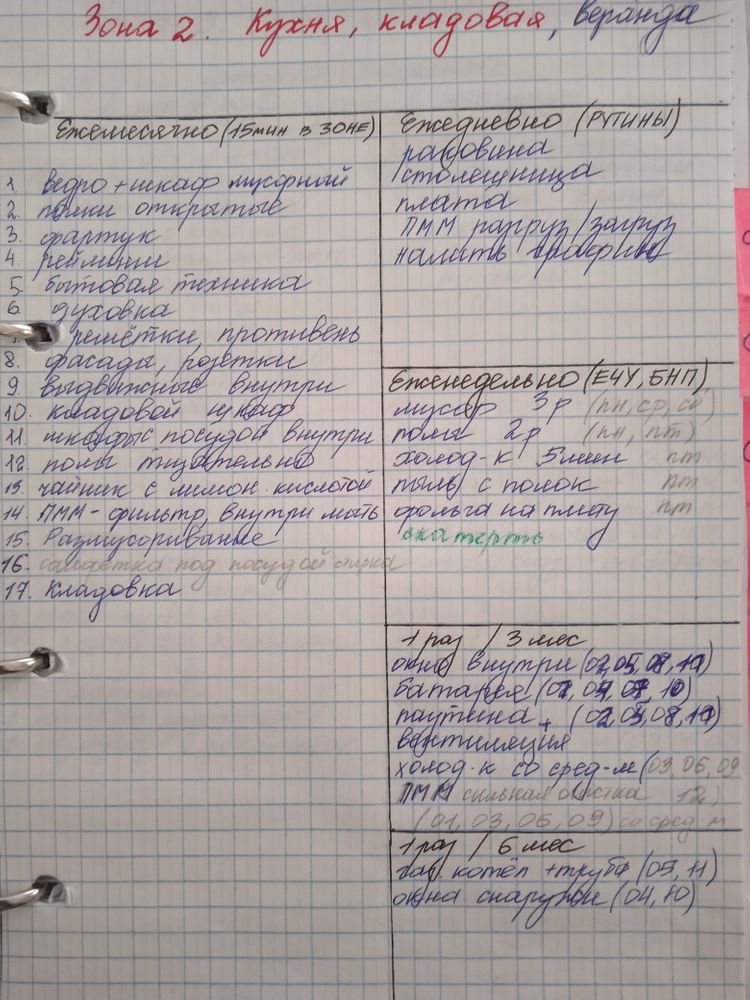 Зона 2. Кухня, кладовая, веранда
Ежемесячно (15мин в ЗОНЕ)
1. ведро + шкаф мусорный
2. полки открытые
3. фартук
4. рейлинги
5. бытовая техника
6. духовка
решётки, противень
8. фасады, розетки
9. выдвижные внутри
10. кладовой шкаф
11. шкафы с посудой внутри
12 полы тщательно
13. чайник с лимон. кислотой
14. ПММ - фильтр, внутри мыть
15. Размусоривание
16. салфетка под посудой стирка
17. Кладовка
Ежедневно (РУТИНЫ)
раковина
столешница
плита
ПММ разгруз/загруз
налить графин
Еженедельно (ЕЧУ, БНП)
мусор 3р (пн, ср, сб)
полы 2р (пн, пт)
холод-к 5мин пт
пыль с полок пт
фольга на плиту пт
скатерть
1 раз / 3 мес
окно внутри (02, 05, 08, 11)
батарея (01, 04, 07, 10)
паутина + (02, 05, 08, 11)
вентиляция
холод-к со сред-м (03, 06, 09
ПММ сильная очистка 12)
(01, 03, 06, 09) со сред-м
1 раз / 6 мес
газ. котёл + труба (05, 11)
окна снаружи (04, 10)